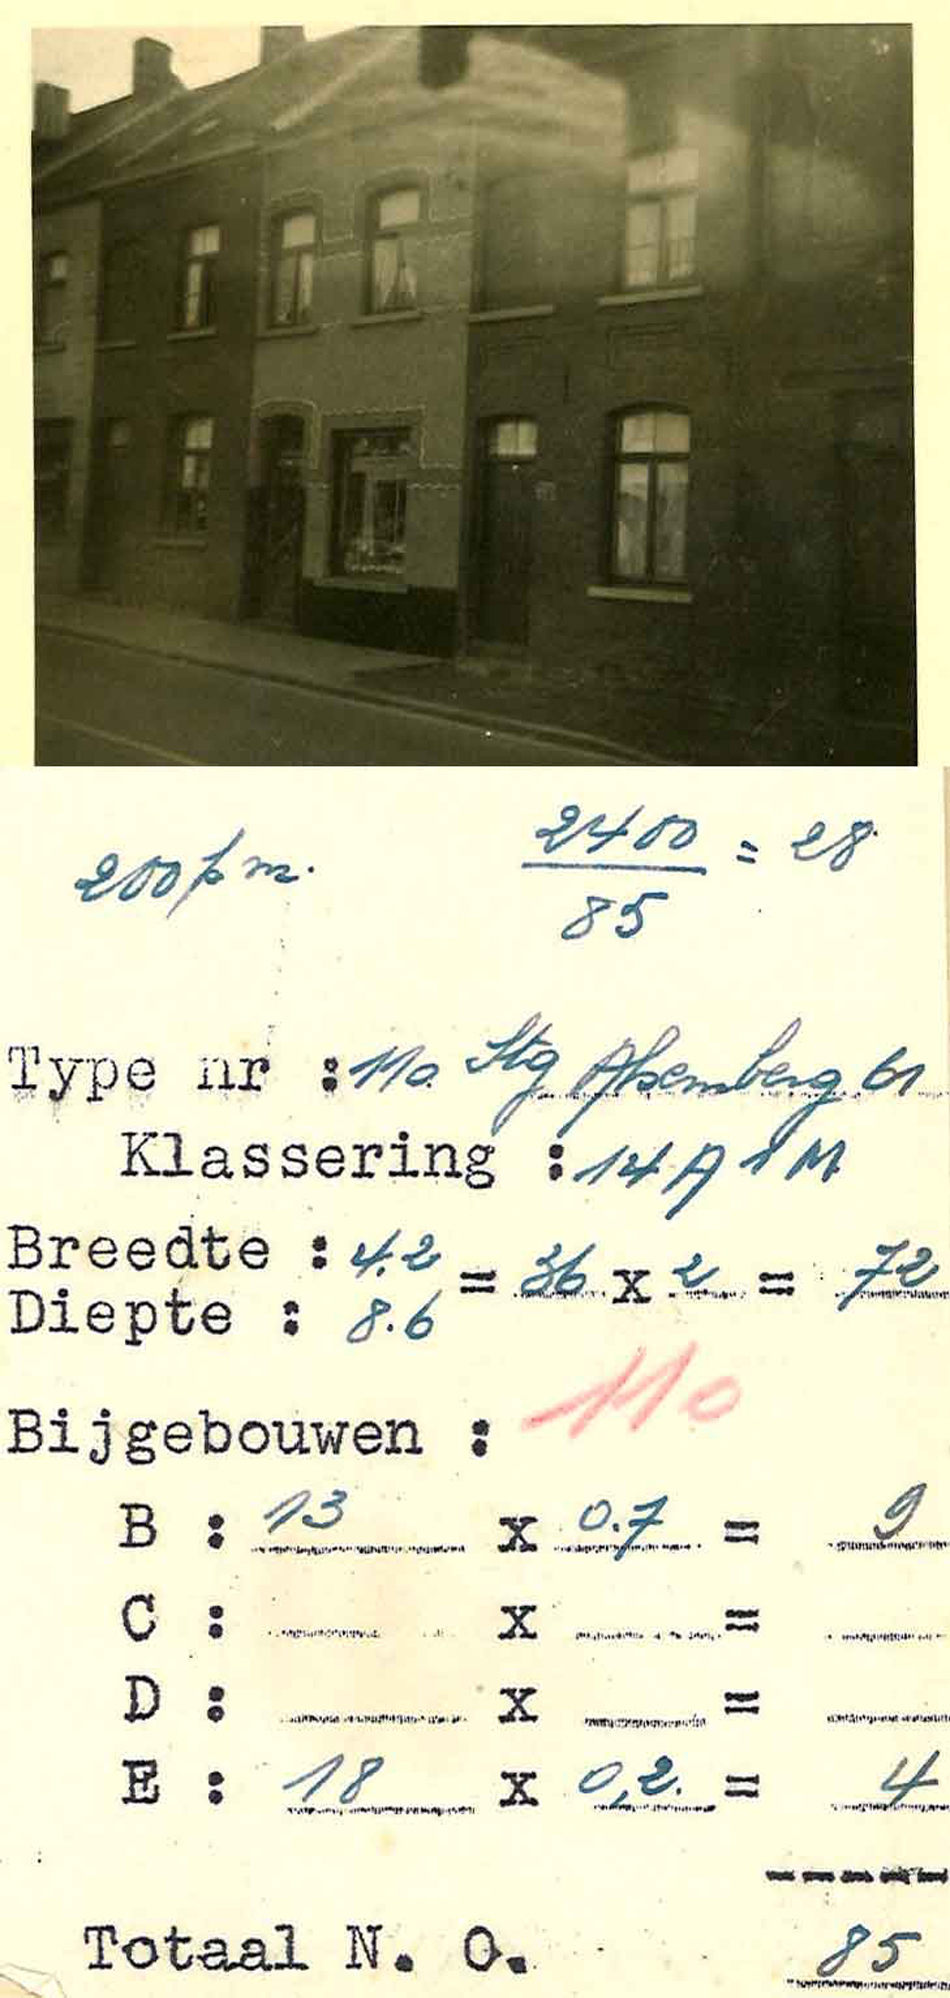 200 p m.
2400 / 85 = 28
Type nr : 110 Stg Alsemberg 61
Klassering : 14 A 1 M
Breedte : 4.2
= 36 x 2 = 72
Diepte : 8.6
110
Bijgebouwen :
B : 13 x 0.7 = 9
C : x =
D : x =
E : 18 x 0,2. = 4
Totaal N. O. 85